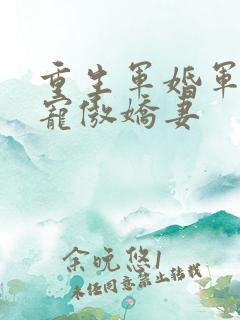 重生軍婚軍
寵傲嬌妻
余晚悠1
未经同意禁止转载